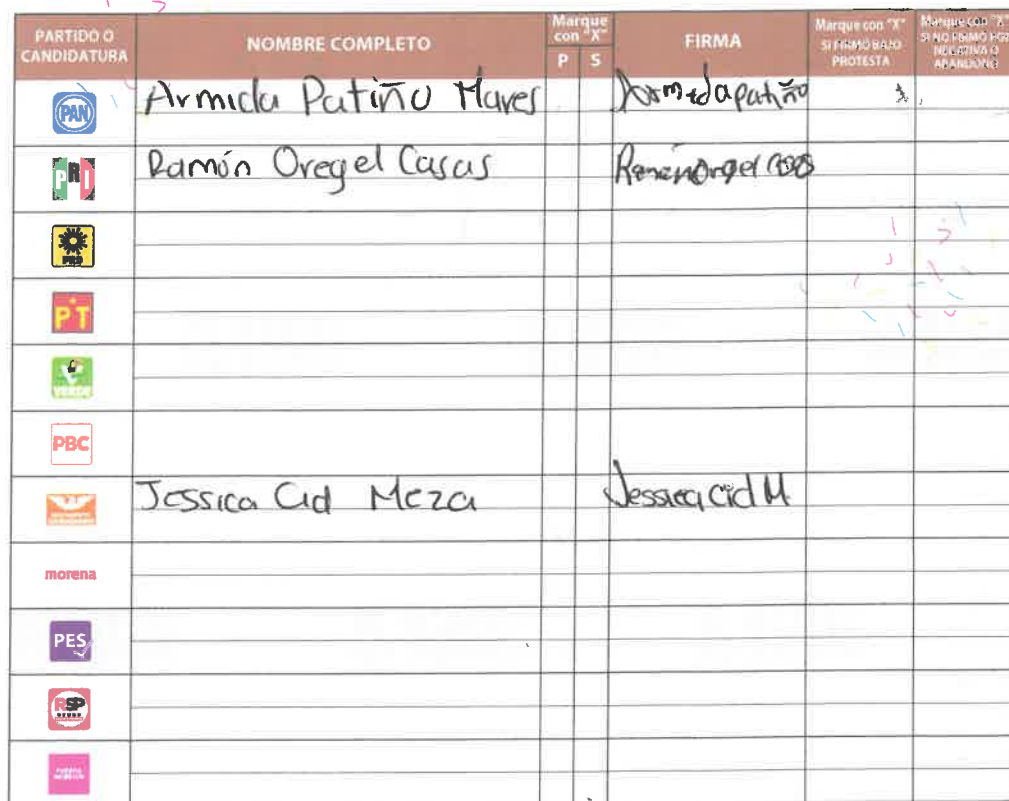 PARTIDO O CANDIDATURA
NOMBRE COMPLETO
Marque con "X"
P S
FIRMA
Marque con "X" SI FIRMÓ BAJO PROTESTA
Marque con "X" SI NO FIRMÓ POR NEGATIVA O ABANDONO
PAN Armida Patiño Mares Armida patiño x
PRI Ramón Oregel Casas
PRD
PT
VERDE
PBC
Jessica Cid Meza Jessica Cid M
morena
PES
RSP